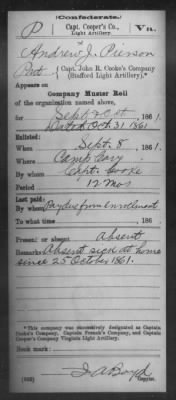 (Confederate.)
P
Capt. Cooper's Co.,
Light Artillery.
Va.
Andrew J. Pierson
Pvt., Capt. John R. Cooke's Company
(Stafford Light Artillery).*
Appears on
Company Muster Roll
of the organization named above,
for Sept & Oct, 186 .
Dated Oct 31 1861
Enlisted:
When Sept. 8, 1861.
Where Camp
By whom Capt. Cooke
Period 12 mos
Last paid:
By whom Pay due from enrollment
To what time , 186 .
Present or absent Absent
Remarks: Absent sick at home
since 25 October 1861.
*This company was successively designated as Captain
Cooke's Company, Captain French's Company, and Captain
Cooper's Company Virginia Light Artillery.
Book mark:
J A Boyd
(642) Copyist.